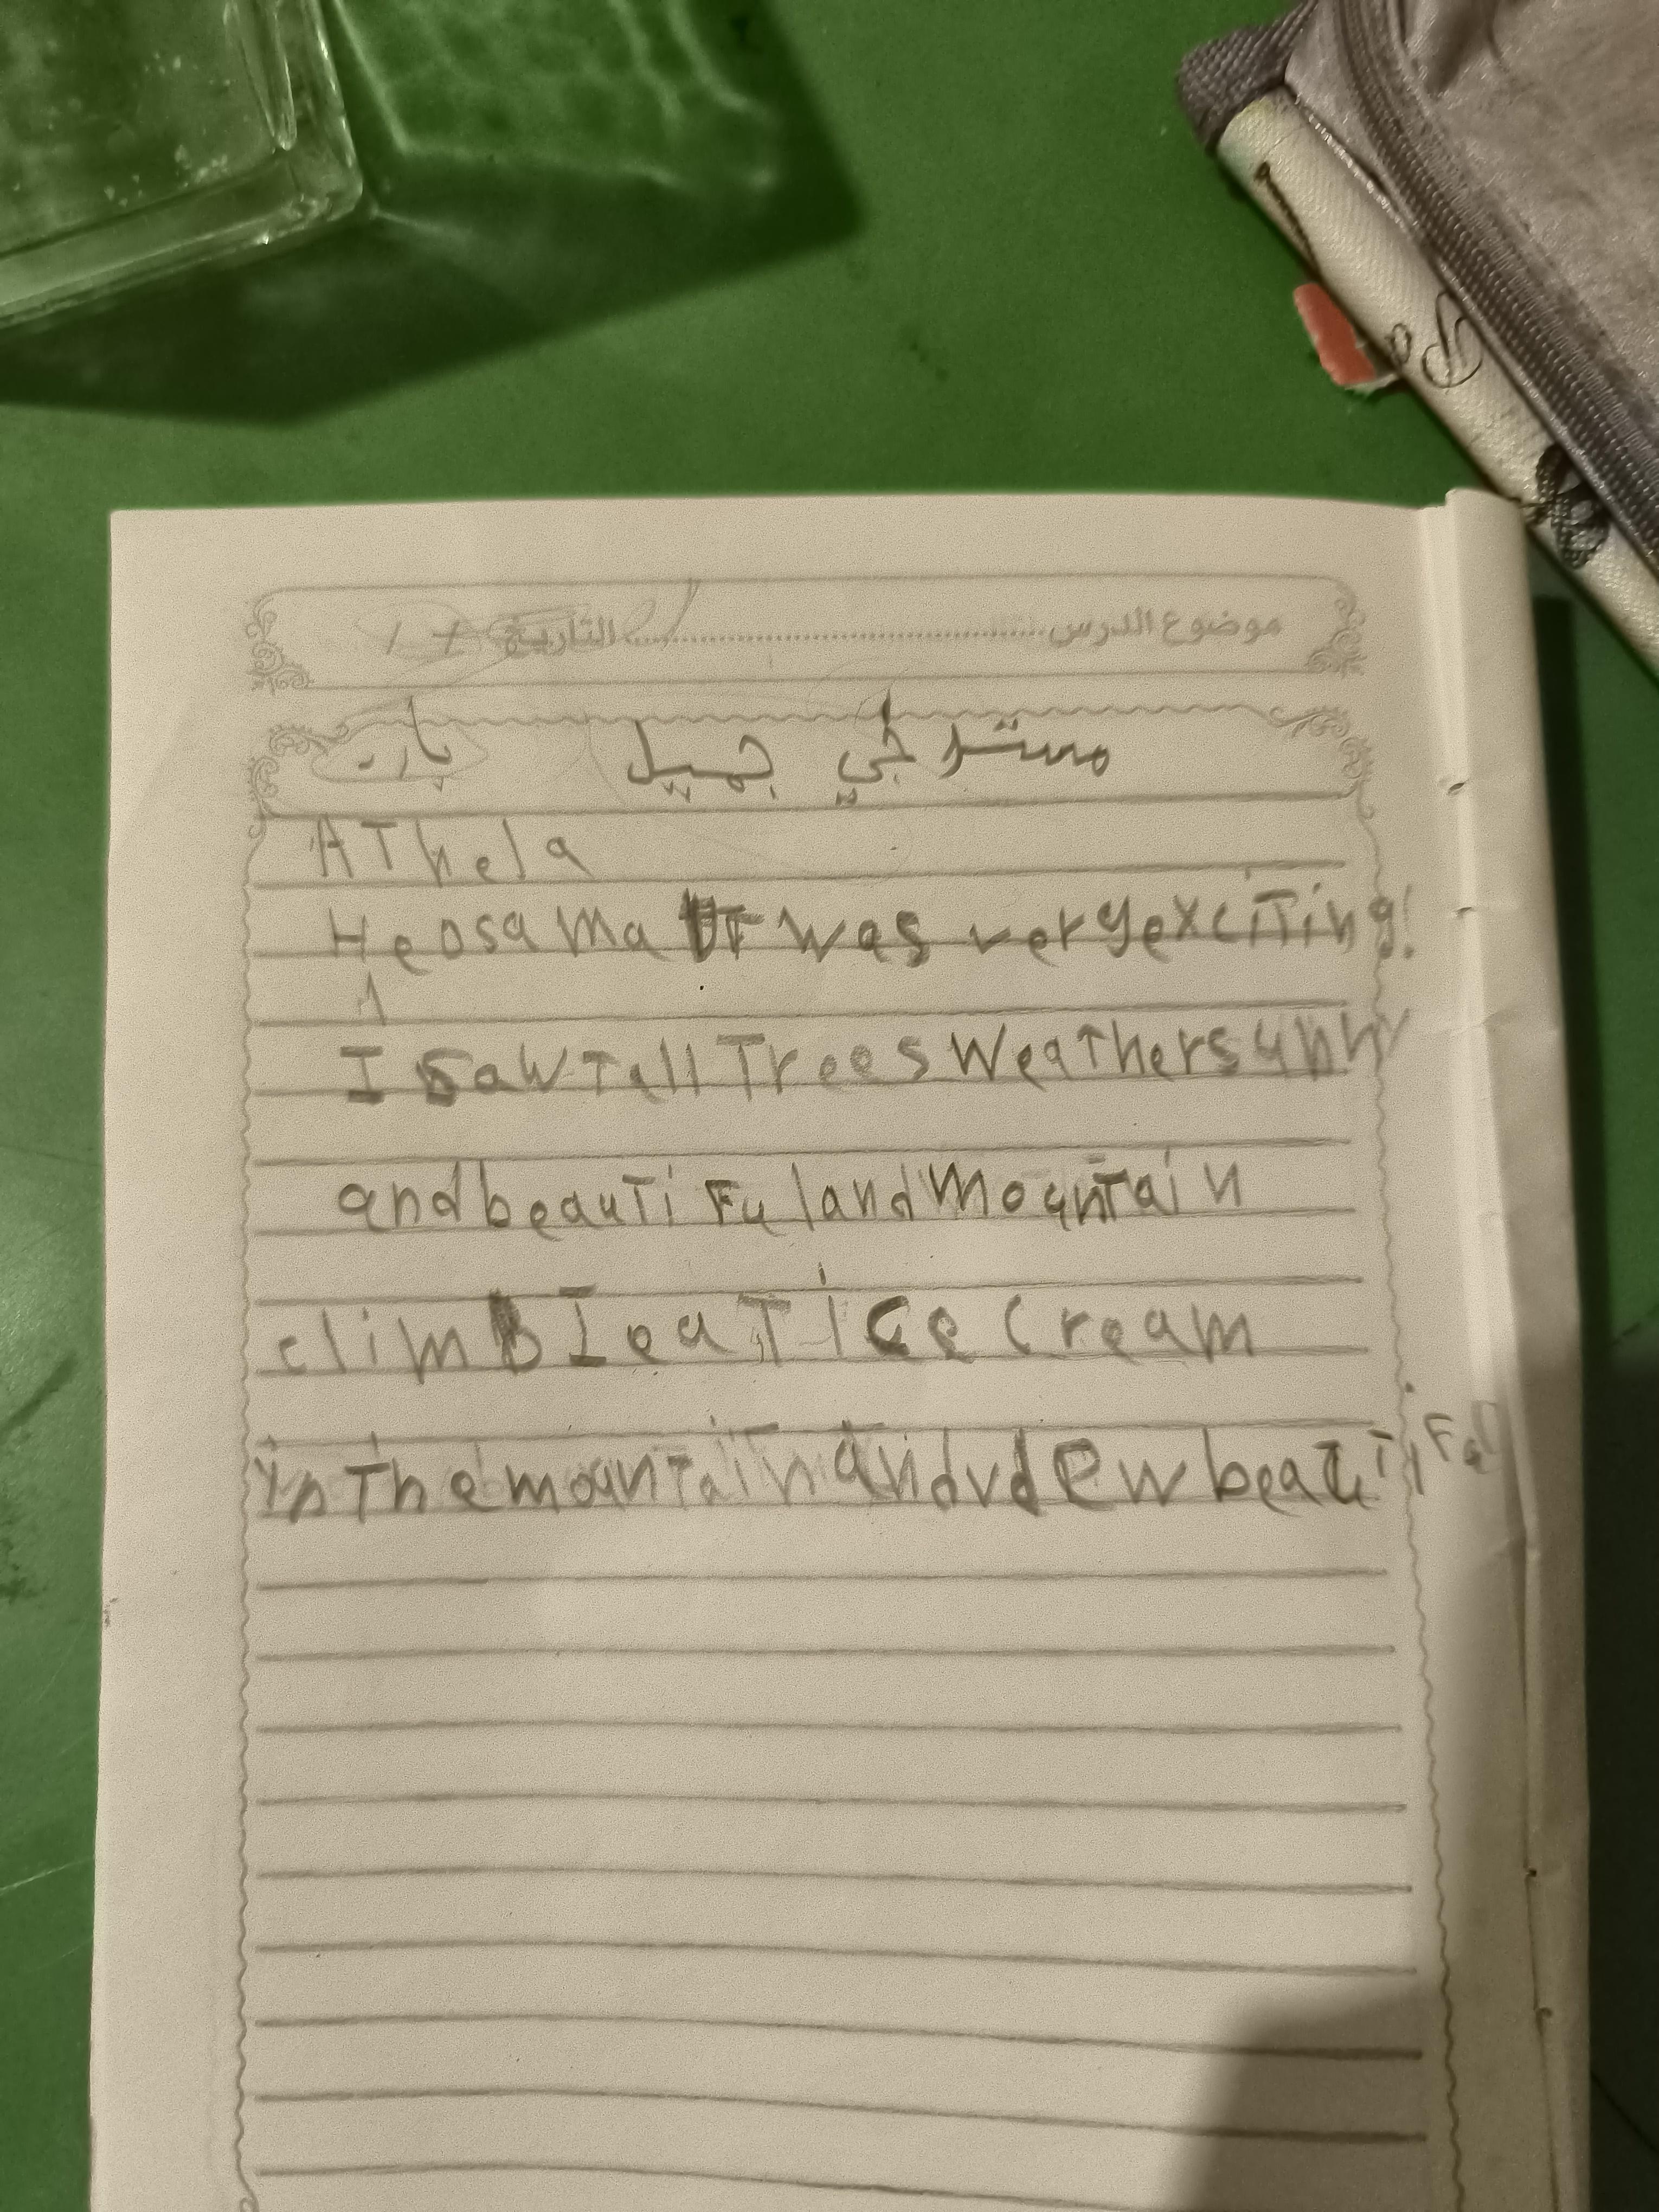 موضوع الدرس التاريخ / /
جميل بارد
AThela
Heosama IT was veryexciTing!
A
I sawTall Trees WeaThersunny
andbeauTiFulandmounTain
climb I eaT ice cream
inThemounTainandvdewbeauTiFul